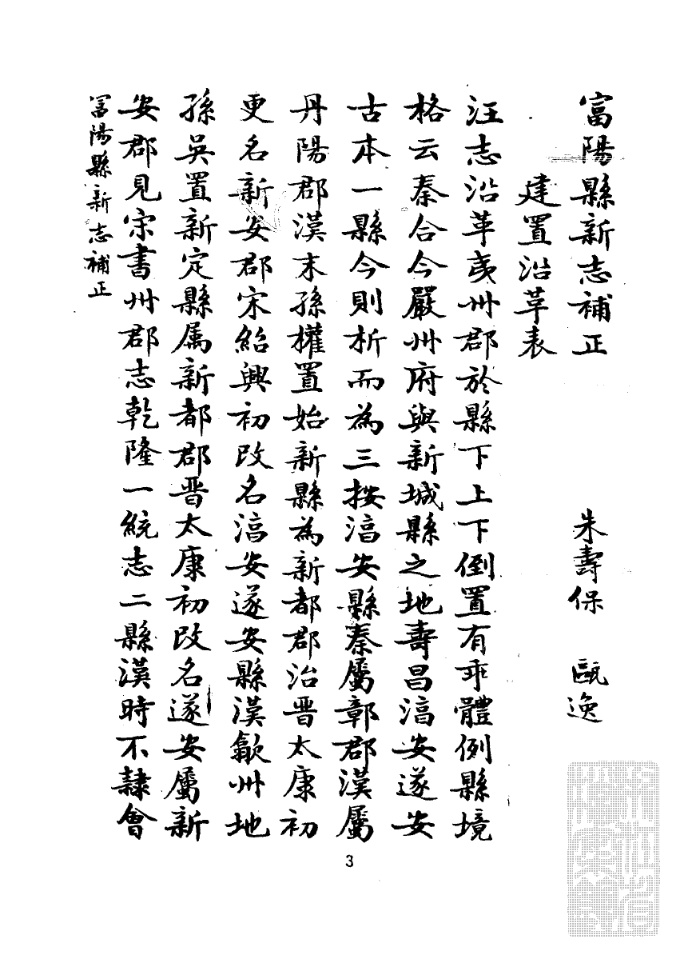 富陽縣新志補正　朱壽保　甌逸
建置沿革表
汪志沿革夷州郡於縣下上下倒置有乖體例縣境
格云秦合今嚴州府與新城縣之地壽昌淳安遂安
古本一縣今則析而為三按淳安縣秦屬鄣郡漢屬
丹陽郡漢末孫權置始新縣為新都郡治晉太康初
更名新安郡宋紹興初改名淳安遂安縣漢歙州地
孫吳置新定縣属新都郡晉太康初改名遂安屬新
安郡見宋書州郡志乾隆一統志二縣漢時不隸會
富陽縣新志補正
3